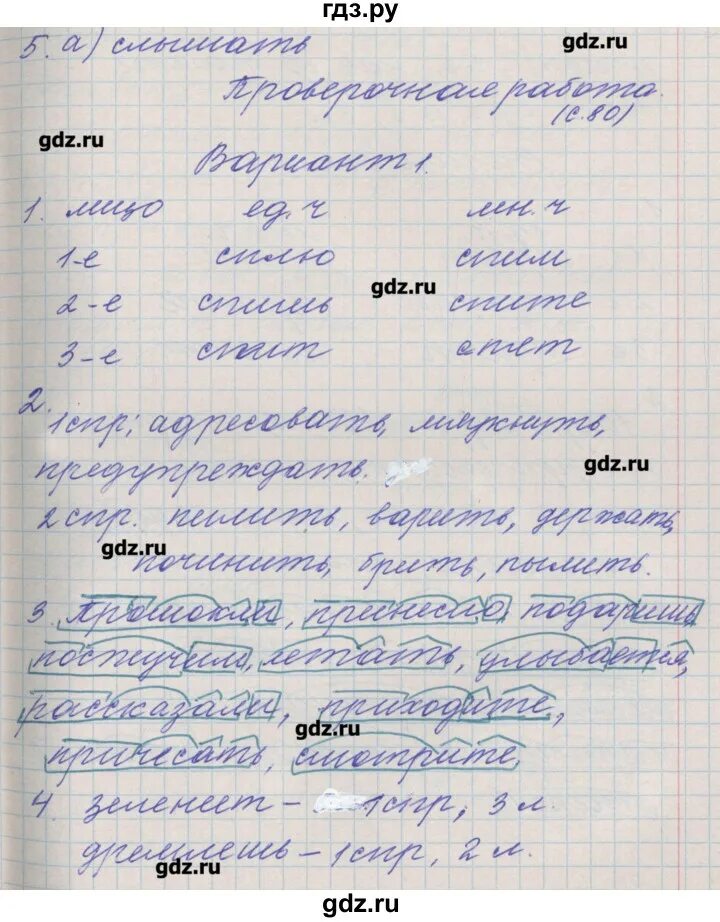 гдз.ру
5. а) слышать
gdz.ru
Проверочная работа.
(с.80)
gdz.ru
Вариант 1.
1. лицо ед.ч мн.ч
1-е сплю спим
gdz.ru
2-е спишь спите
3-е спит спят
2.
1 спр; адресовать, мяукнуть,
предупреждать.
gdz.ru
2 спр. пилить, варить, держать,
gdz.ru
починить, брить, пылить.
3. Промокли, принесло, подаришь
постучим, летать, улыбается,
рассказали, приходите,
gdz.ru
причесать, смотрите.
4. зеленеет – 1 спр, 3 л.
дремлешь – 1 спр, 2 л.
gdz.ru
gdz.ru